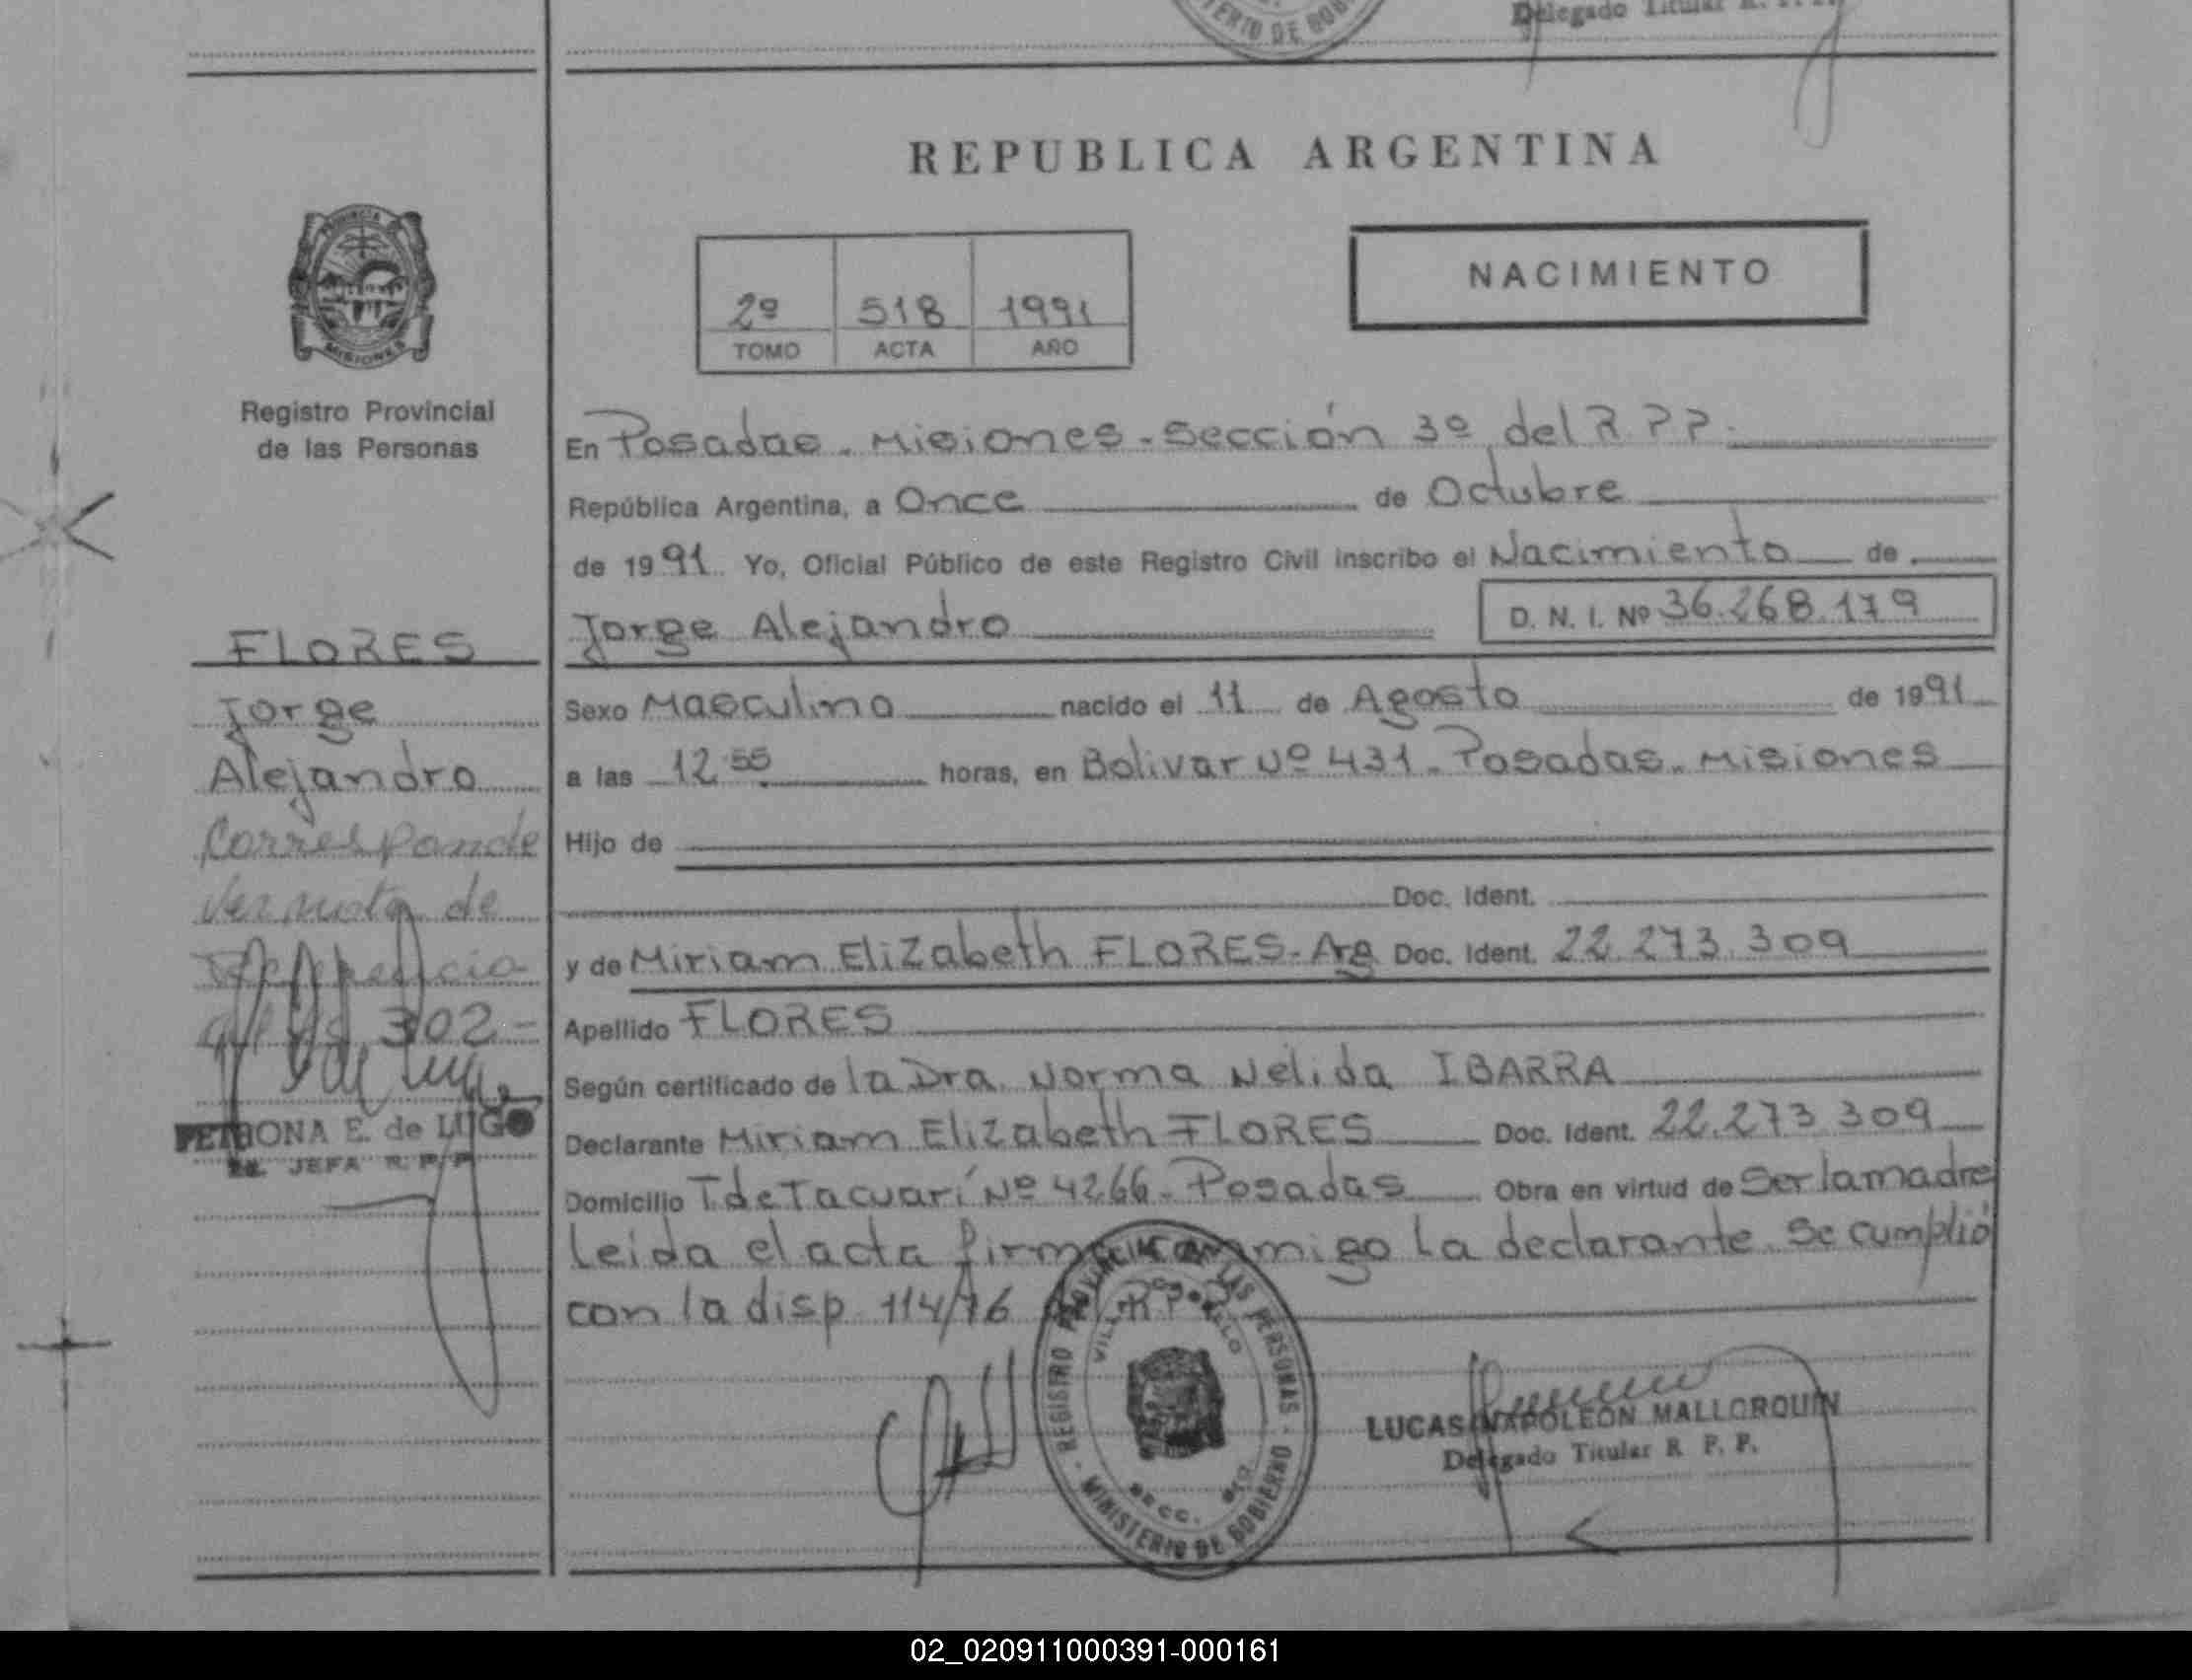 MINISTERIO DE GOB
Delegado Titular R. P. P.
REPUBLICA ARGENTINA
PROVINCIA DE
MISIONES
NACIMIENTO
2º 518 1991
TOMO ACTA AÑO
Registro Provincial
de las Personas
En Posadas. Misiones. Sección 3º del R.P.P.
República Argentina, a Once de Octubre
de 1991 Yo, Oficial Público de este Registro Civil inscribo el Nacimiento de
Jorge Alejandro D. N. I. Nº 36.268.179
FLORES
Jorge
Alejandro
Corresponde
Ver nota de
Referencia
302=
PETRONA E. de LUGO
JEFA R. P. P.
Sexo Masculino nacido el 11 de Agosto de 1991
a las 12.55 horas, en Bolivar Nº 431. Posadas. Misiones
Hijo de
Doc. Ident.
y de Miriam Elizabeth FLORES. Arg Doc. Ident. 22.273.309
Apellido FLORES
Según certificado de la Dra. Norma Nélida IBARRA
Declarante Miriam Elizabeth FLORES Doc. Ident. 22.273.309
Domicilio T de Tacuarí Nº 4266. Posadas Obra en virtud de Ser la madre
Leida el acta firma conmigo la declarante. Se cumplió
con la disp. 114/76 R.P.P.
REGISTRO PROVINCIAL DE LAS PERSONAS
MINISTERIO DE GOBIERNO
LUCAS NAPOLEON MALLORQUIN
Delegado Titular R. P. P.
02_020911000391-000161